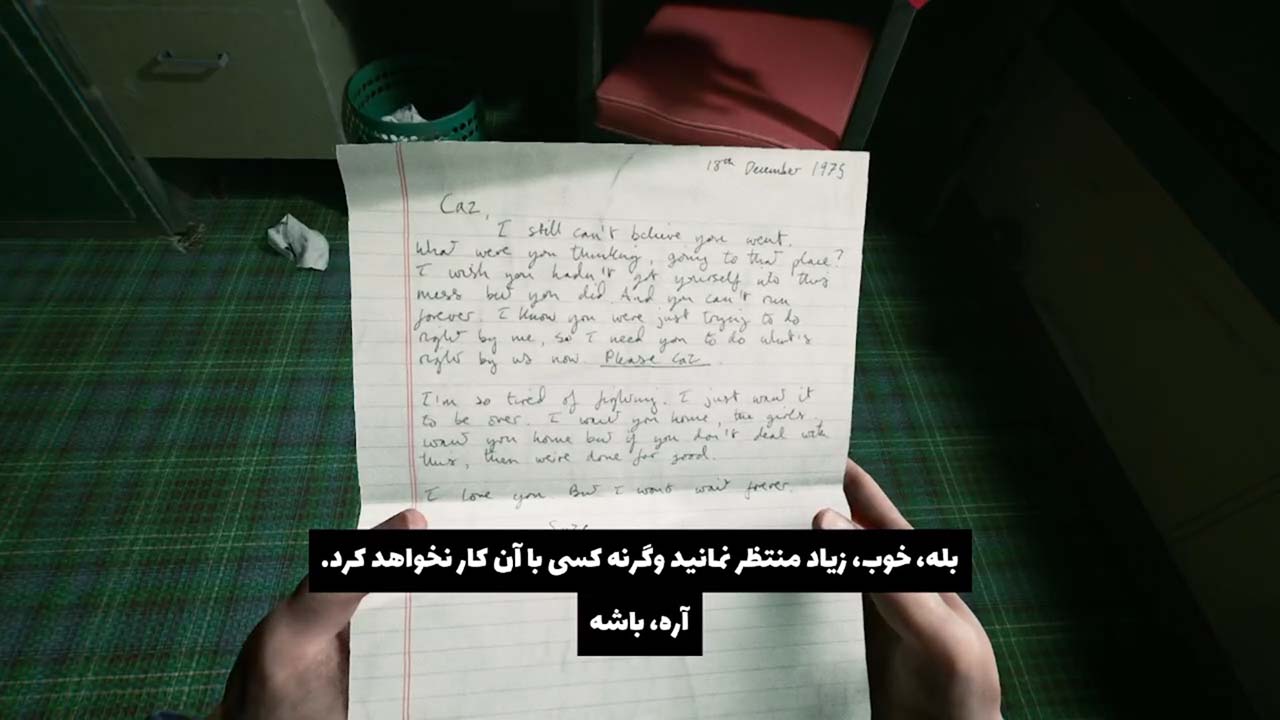 18th December 1975
Caz,
I still can't believe you went.
What were you thinking, going to that place?
I wish you hadn't got yourself into this
mess but you did. And you can't run
forever. I know you were just trying to do
right by me, so I need you to do what's
right by us now. Please Caz.
I'm so tired of fighting. I just want it
to be over. I want you home, the girls
want you home but if you don't deal with
this, then we're done for good.
I love you. But I won't wait forever.
بله، خوب، زیاد منتظر نمانید وگرنه کسی با آن کار نخواهد کرد.
آره، باشه